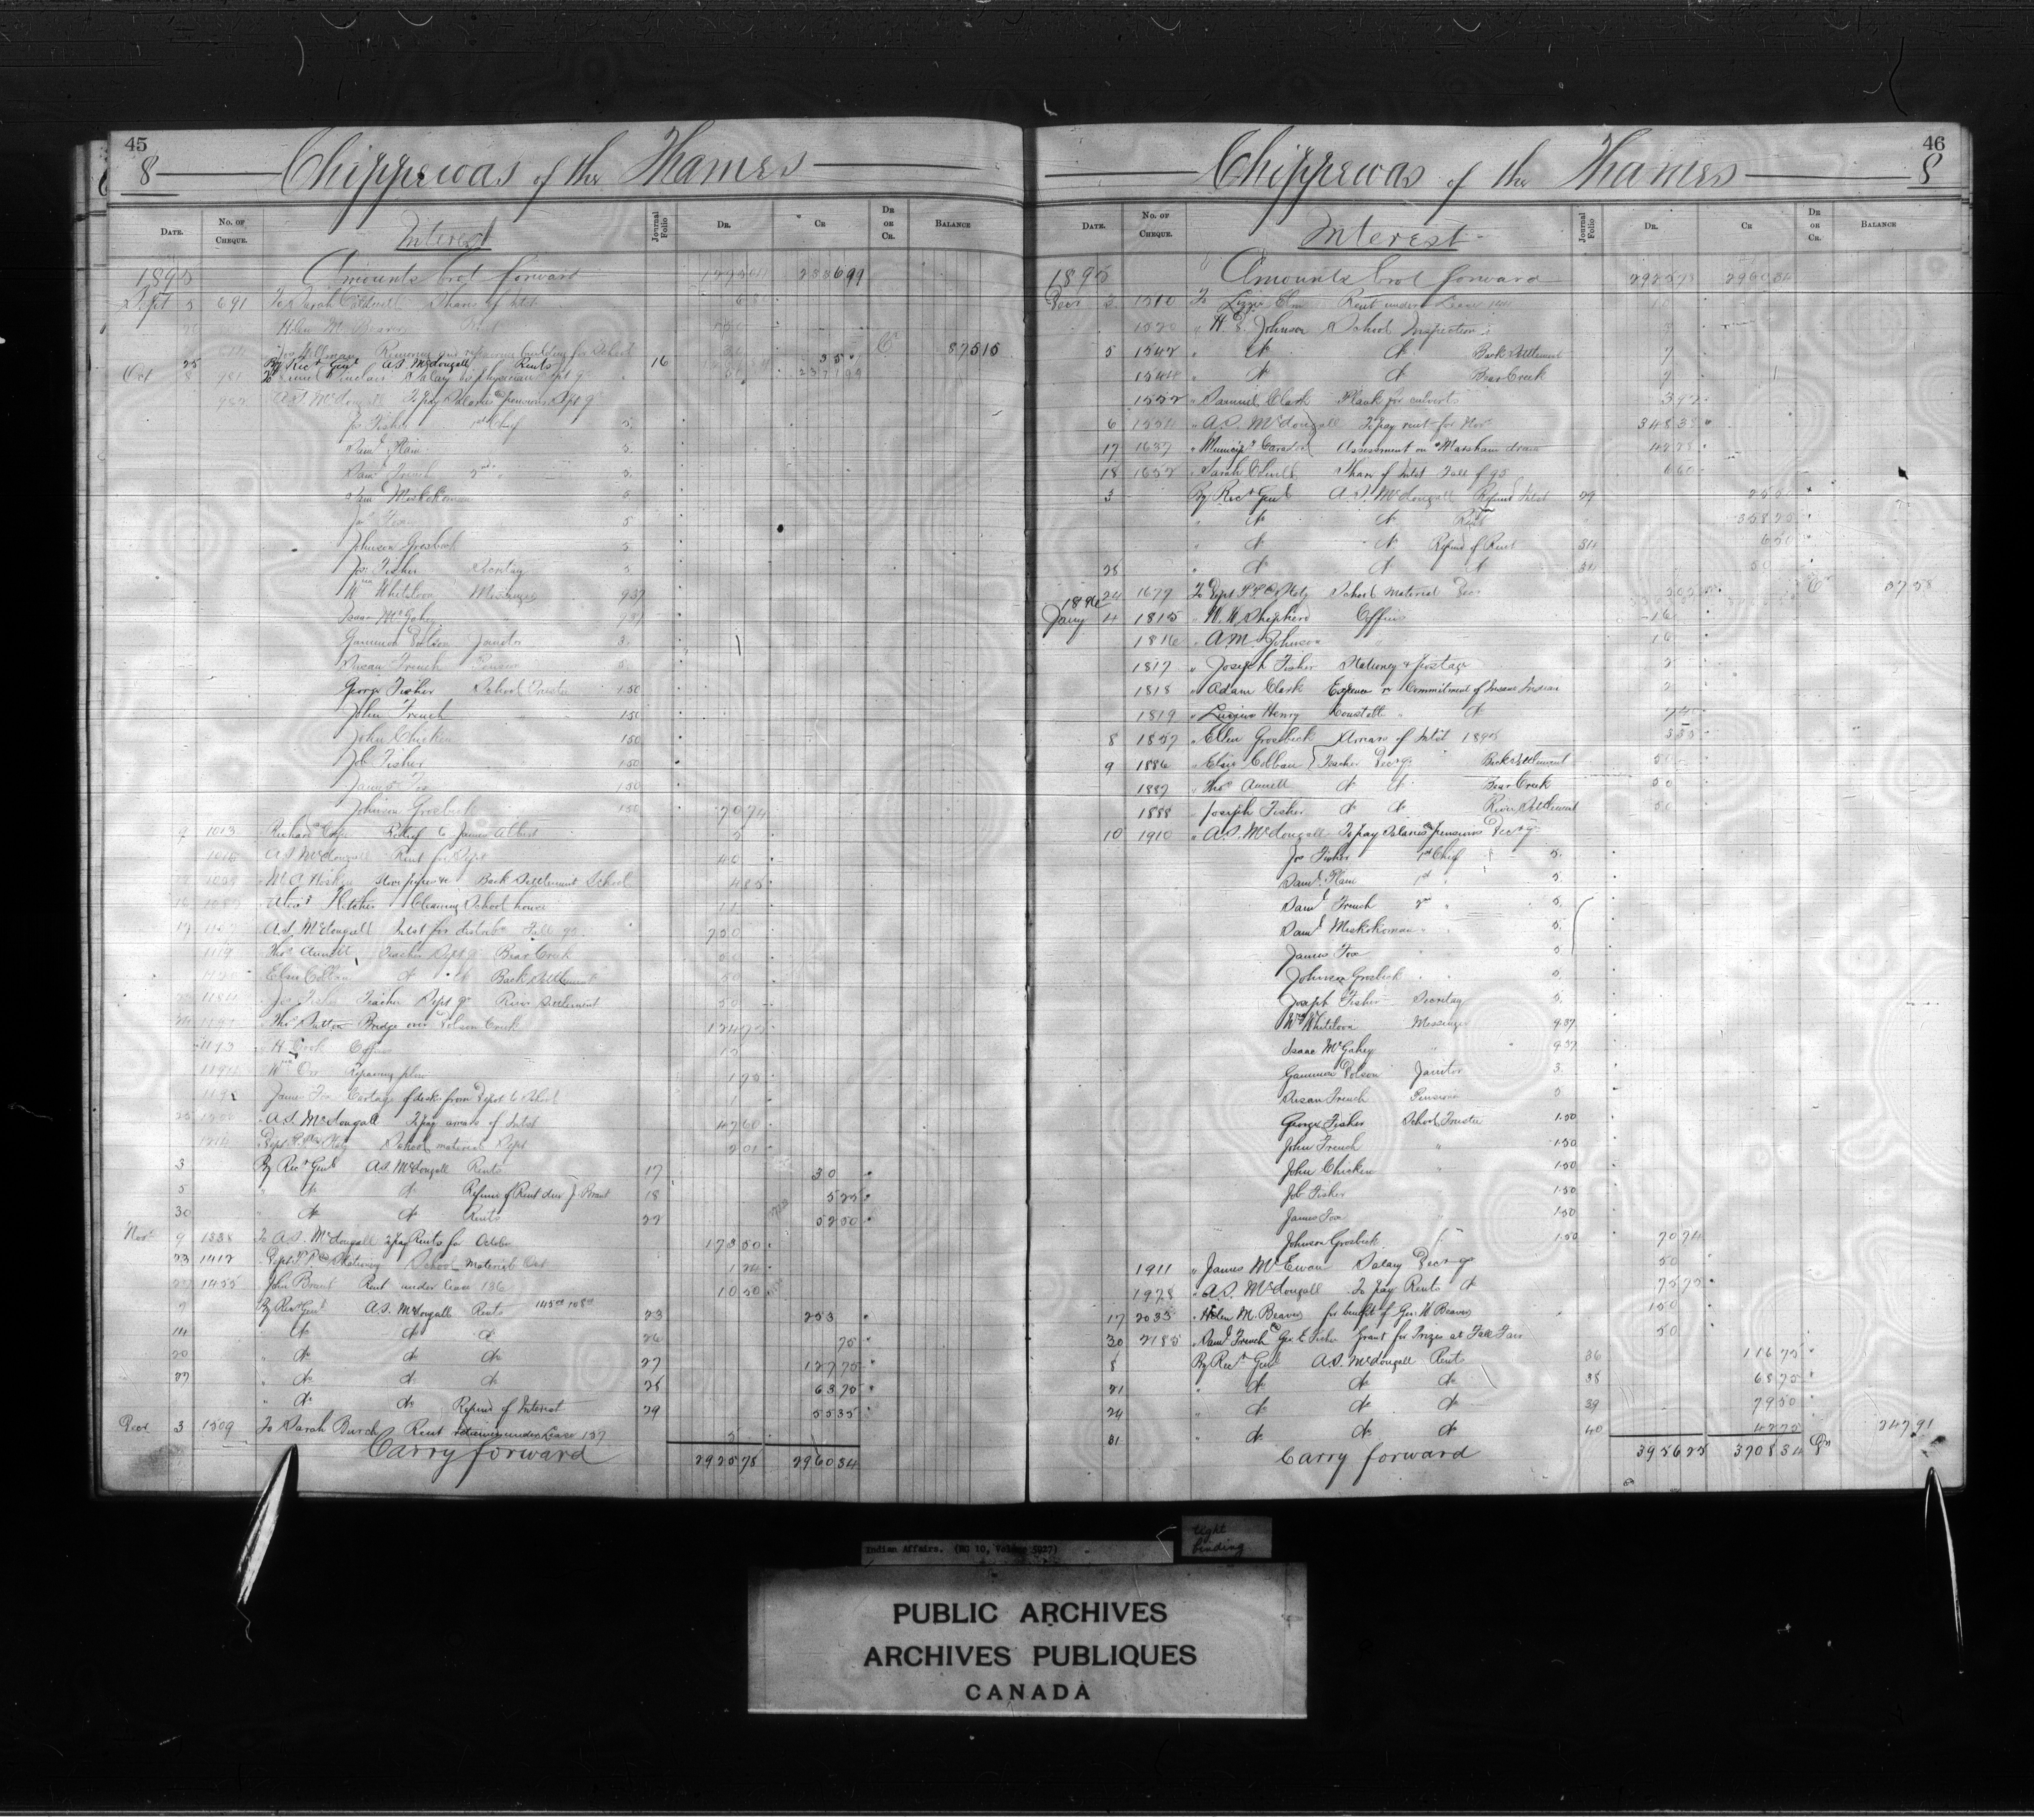 45
8 Chippewas of the Thames
DATE. No. OF CHEQUE. Interest Journal Folio DR. CR DR OR CR. BALANCE
1895 Amounts brot forward 233699
Sept 5 691 To Sarah Coldwell Share of Intst 6 60
Helen M Beaver
Removing and repairing building for School Cr 875 15
25 By Recr Genl A.S. McDougall Rents 16 35
Oct 8 981 Salary as physician Sept qr 2371 99
982 A.S. McDougall To pay Salaries & pensions Sept qr
Jos Fisher 1st Chief 5.
Saml Plain 5.
Saml French 2nd " 5.
Saml Miskokoman 5
Jas Fox 5
Johnson Grosbeck 5
Jos Fisher Secretary 5
Wm Whiteloon Messenger 9 37
Isaac McGahey "
Gammon Dolson Janitor 3.
Susan French Pension 5.
George Fisher School Trustee 1.50
John French " 1.50
John Chicken 1.50
Job Fisher 1.50
James Fox 1.50
Johnson Grosbeck 1.50 70 74
9 1013 Richard Relief to James Albert 2
1016 A.S. McDougall Rent for Sept 46
Stove pipes &c Back Settlement School 4 85
Cleaning School house
17 A.S. McDougall Intst for distribn Fall 95 750
1119 Thos Annett, Teacher Sept qr Bear Creek 50
1120 Elsie Colban do do Back Settlement 50
Jos Fisher Teacher Sept qr River Settlement 50 -
Thos Sutton Bridge over Dolson Creek 124 75
1193 " H Cook Coffin
1194 Wm Orr Repairing plow 1 75
James Fox Cartage of desks from Depot to School 1
25 A.S. McDougall To pay arrears of Intst 47 60
Dept P. & Staty School material Sept 2 01
3 By Recr Genl A.S. McDougall Rents 17 30
5 " do do Refund of Rent due J. Brant 18 5 25
30 " do do Rents 22 52 50
Novr 9 1338 To A.S. McDougall To pay Rents for October 173 50
23 1412 Dept P.P. & Stationery School Material Oct 1 24
1455 John Brant Rent under lease 136 10 50
7 By Recr Genl A.S. McDougall Rents 23 253
14 " do do do 26 75
20 " do do do 27 127 75
27 " do do do 28 63 75
" do do Refund of Interest 29 55 35
Decr 3 1509 To Sarah Burch Rent under Lease 137 5
Carry forward 2925 78 2960 34
46
Chippewas of the Thames 8
DATE. No. OF CHEQUE. Interest Journal Folio DR. CR DR OR CR. BALANCE
1895 Amounts brot forward 2925 78 2960 34
Decr 3 1510 To Lizzie Elm Rent under Lease 141
1520 " H. D. Johnson School Inspection
5 1542 " do do Back Settlement 7
1544 " do do Bear Creek 7
1552 " Samuel Clark Plank for culverts 3 92
6 1554 " A.S. McDougall To pay rent for Nov 348 35
17 1637 " Municipy Caradoc Assessment on "Marsham drain 142 78
18 1652 " Sarah Coldwell Share of Intst Fall of 95 6 60
5 By Recr Genl A.S. McDougall Refund Intst 29 25 50
" do do Rent 358 75
" do do Refund of Rent 34 6 50
28 " do do do 34 50
24 1677 To Dept P.P. & Staty School Material Dec Cr 37 58
1896
Jany 4 1815 " W. W. Shepherd Coffins 16
1816 " A M Johnson " 16
1817 " Joseph Fisher Stationery & postage 2
1818 " Adam Clark Expenses re Commitment of Insane Indian 2
1819 " Lucius Henry Constable " do 2 40
8 1857 " Ellen Grosbeck Arrears of Intst 1895 5 55
9 1886 " Elsie Colban Teacher Dec qr Back Settlement 50
1887 " Thos Annett do do Bear Creek 50
1888 " Joseph Fisher do do River Settlement 50
10 1910 " A.S. McDougall To pay Salaries & pensions Dec qr
Jos Fisher 1st Chief 5.
Saml Plain 1st " 5.
Saml French 2nd " 5.
Saml Miskokoman " 5.
James Fox " 5
Johnson Grosbeck " 5.
Joseph Fisher Secretary 5.
Wm Whiteloon Messenger 9.37
Isaac McGahey " 9.37
Gammon Dolson Janitor 3.
Susan French Pension 5
George Fisher School Trustee 1.50
John French " 1.50
John Chicken " 1.50
Job Fisher 1.50
James Fox " 1.50
Johnson Grosbeck " 1.50 70 74
1911 " James McEwan Salary Dec qr 50
1978 " A.S. McDougall To pay Rents do 75 75
17 2035 " Helen M. Beaver for benefit of Geo. W Beaver 150
30 2185 " Saml French & Geo. E Fisher Grant for Prizes at Fall Fair 50
8 By Recr Genl A.S. McDougall Rents 36 116 75
21 " do do do 38 68 75
24 " do do do 39 79 50
31 " do do do 40 42 75 247.91
Carry forward 3956 25 3708 34 Dr
Indian Affairs. (RG 10, Volume 5927)
tight binding
PUBLIC ARCHIVES
ARCHIVES PUBLIQUES
CANADA